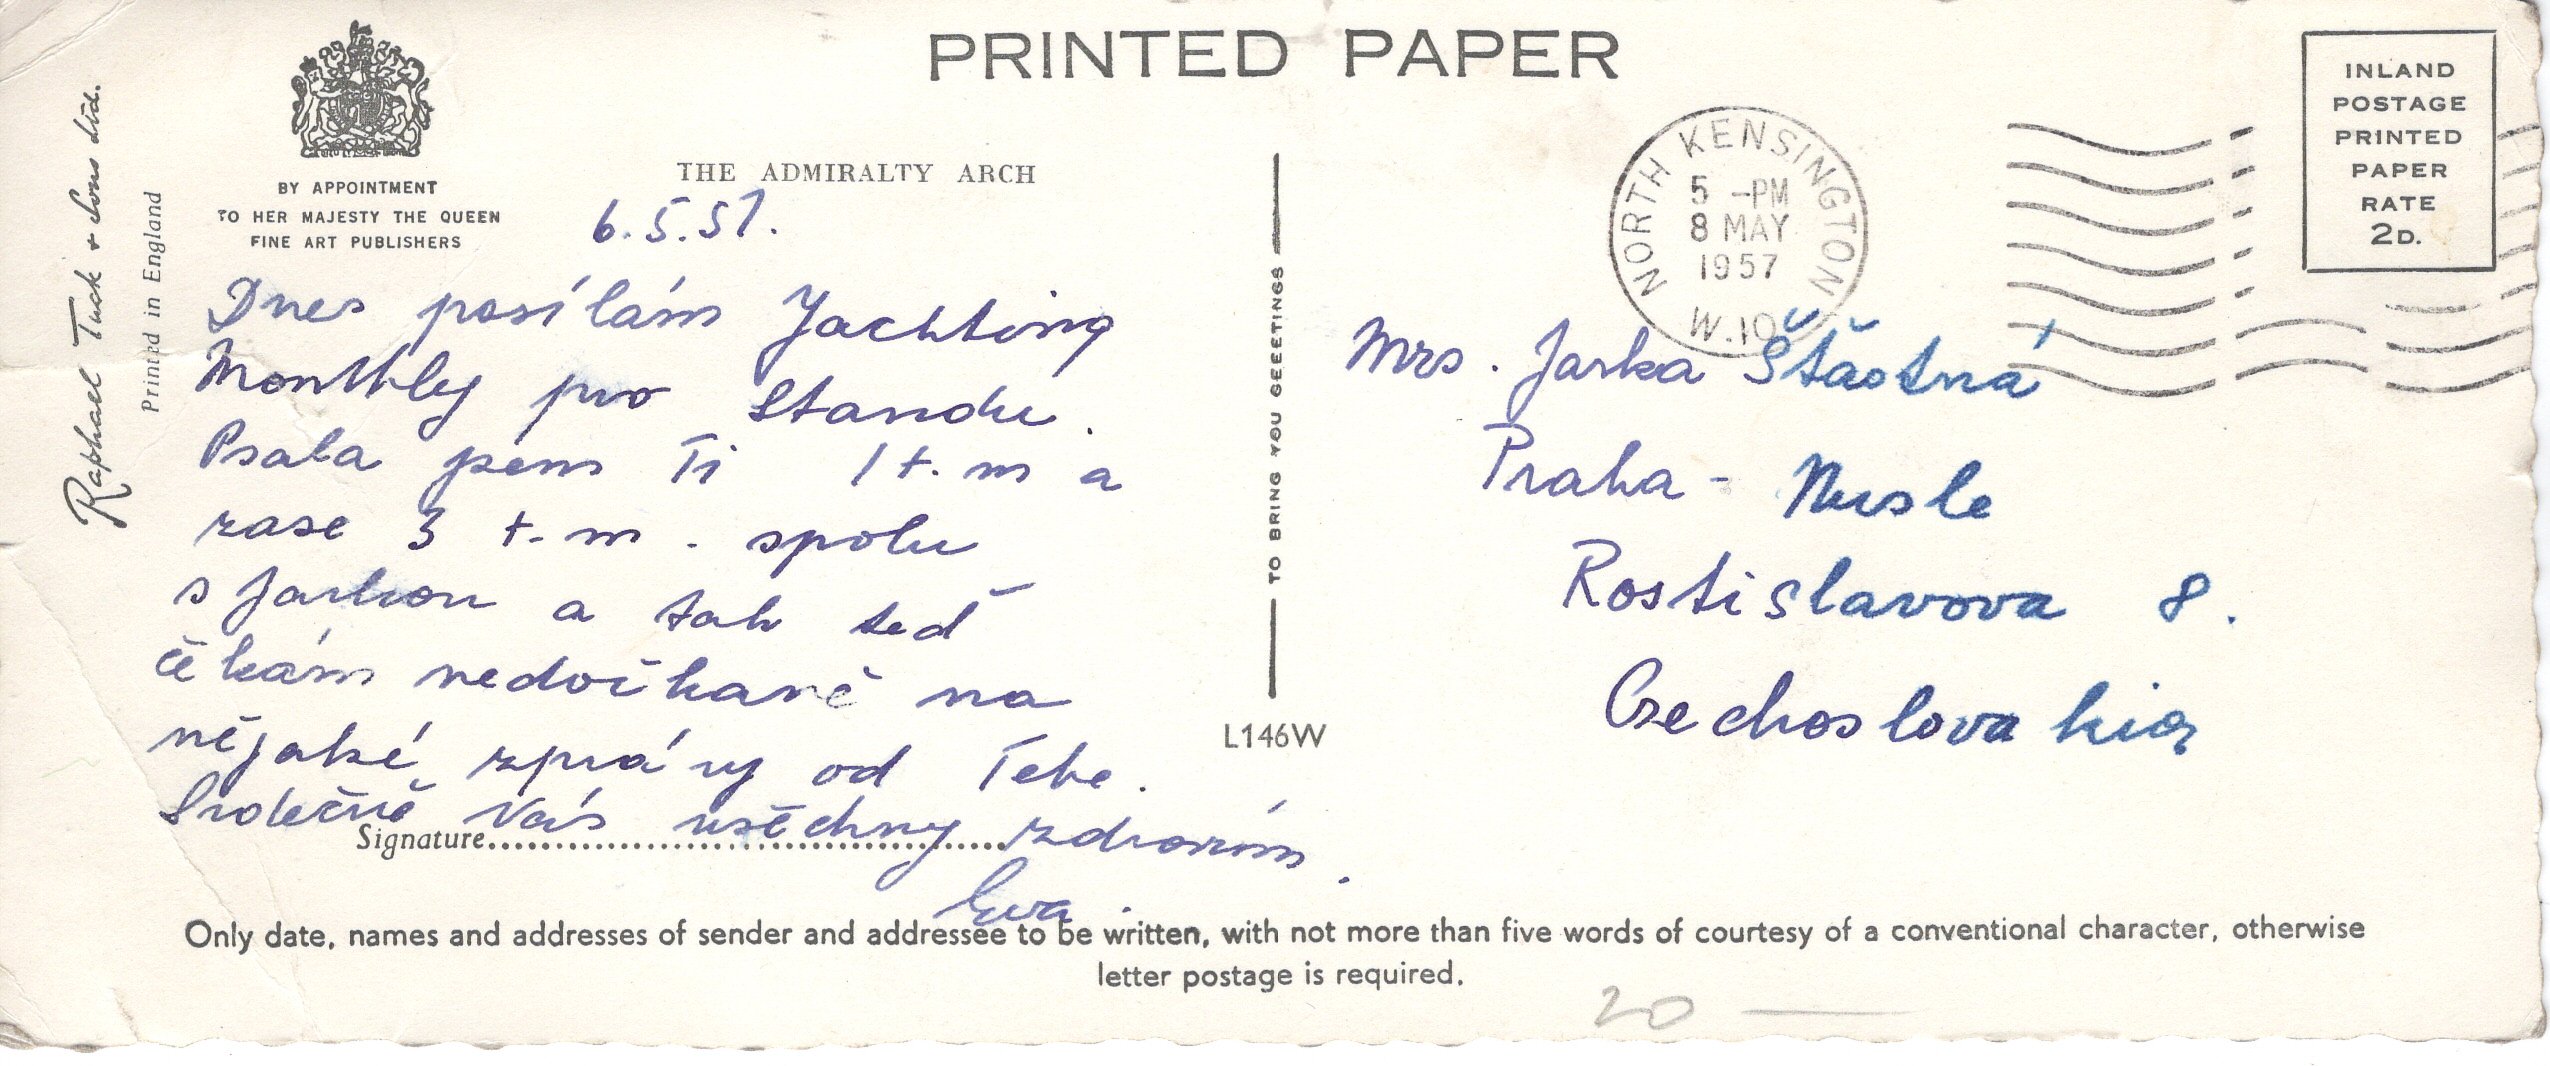 PRINTED PAPER
INLAND
POSTAGE
PRINTED
PAPER
RATE
2D.
Raphael Tuck & Sons Ltd.
Printed in England
BY APPOINTMENT
TO HER MAJESTY THE QUEEN
FINE ART PUBLISHERS
THE ADMIRALTY ARCH
6.5.57.
Dnes posílám Yachting
Monthly pro Standu.
Psala jsem Ti 1 t.m a
zase 3 t.m. spolu
s Jarkou a tak teď
čekám nedočkavě na
nějaké zprávy od Tebe.
Srdečně Vás všechny zdravím.
Signature
Eva.
TO BRING YOU GREETINGS
L146W
NORTH KENSINGTON
5 -PM
8 MAY
1957
W.10
Mrs. Jarka Šťastná
Praha - Nusle
Rostislavova 8.
Czechoslovakia
Only date, names and addresses of sender and addressee to be written, with not more than five words of courtesy of a conventional character, otherwise
letter postage is required.
20 —